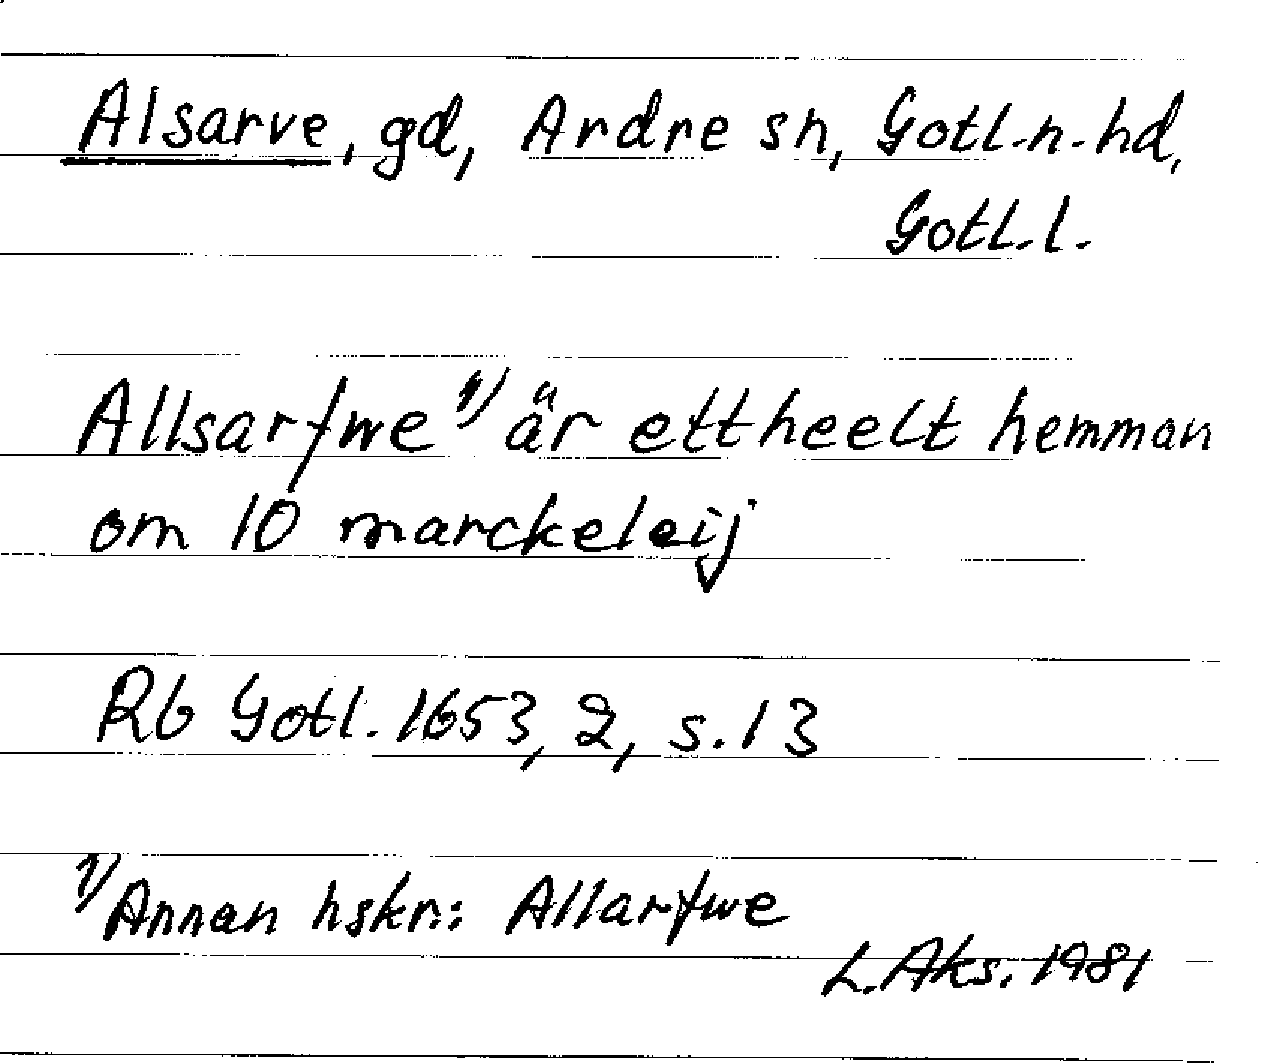 Alsarve, gd, Ardre sn, Gotl.n.hd,
Gotl.l.
Allsarfwe 1) är ettheelt hemman
om 10 marckeleij
Rb Gotl. 1653, 2, s. 13
1) Annan hskr.: Allarfwe
L. Aks. 1981